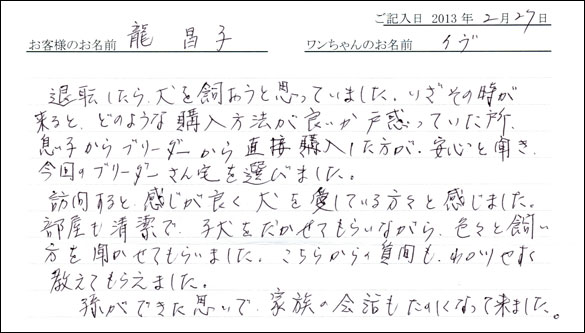 ご記入日 2013年2月27日
お客様のお名前 龍 昌子 ワンちゃんのお名前 イヴ
退転したら、犬を飼おうと思っていました。いざその時が
来ると、どのような購入方法が良いか戸惑っていた所、
息子からブリーダーから直接購入した方が、安心と聞き、
今回のブリーダーさん宅を選びました。
訪問すると、感じが良く犬を愛している方々と感じました。
部屋も清潔で、子犬をだかせてもらいながら、色々と飼い
方を聞かせてもらいました。こちらからの質問も、わかりやすく
教えてもらえました。
孫ができた思いで、家族の会話もたのしくなって来ました。